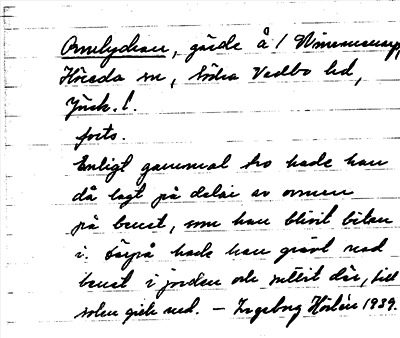 Ormlydran, gärde å / Vimmenarp,
Höreda sn, Södra Vedbo hd,
Jönk. l.
forts.
Enligt gammal tro hade han
då lagt på delar av ormen
på benet, som han blivit biten
i. Därpå hade han grävt ned
benet i jorden och suttit där, till
solen gick ned. – Ingeborg Hörlén 1939.